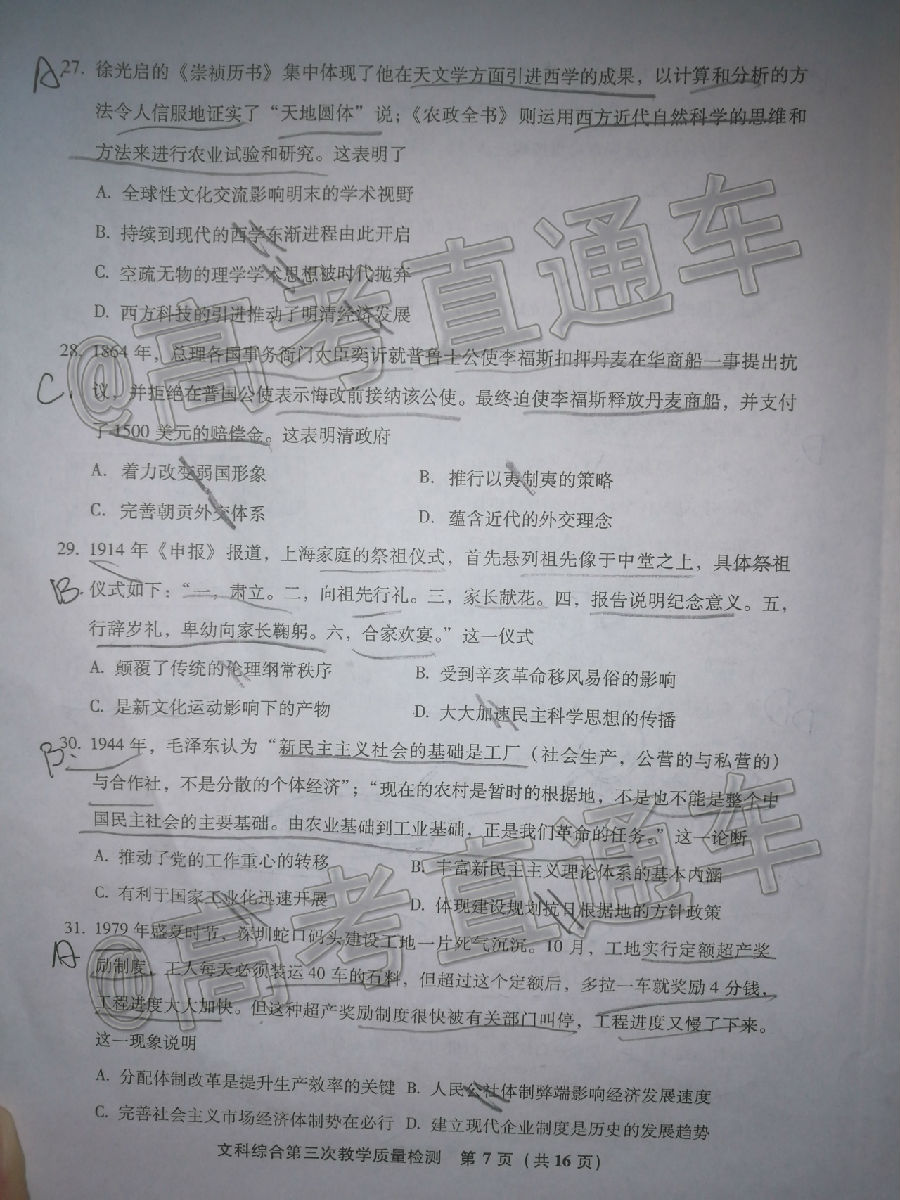 A
27. 徐光启的《崇祯历书》集中体现了他在天文学方面引进西学的成果，以计算和分析的方
法令人信服地证实了“天地圆体”说；《农政全书》则运用西方近代自然科学的思维和
方法来进行农业试验和研究。这表明了
A. 全球性文化交流影响明末的学术视野
B. 持续到现代的西学东渐进程由此开启
C. 空疏无物的理学学术思想被时代抛弃
D. 西方科技的引进推动了明清经济发展
C
28. 1864 年，总理各国事务衙门大臣奕䜣就普鲁士公使李福斯扣押丹麦在华商船一事提出抗
议，并拒绝在普国公使表示悔改前接纳该公使。最终迫使李福斯释放丹麦商船，并支付
了 1500 美元的赔偿金。这表明清政府
A. 着力改变弱国形象 B. 推行以夷制夷的策略
C. 完善朝贡外交体系 D. 蕴含近代的外交理念
B
29. 1914 年《申报》报道，上海家庭的祭祖仪式，首先悬列祖先像于中堂之上，具体祭祖
仪式如下：“一，肃立。二，向祖先行礼。三，家长献花。四，报告说明纪念意义。五，
行辞岁礼，卑幼向家长鞠躬。六，合家欢宴。”这一仪式
A. 颠覆了传统的伦理纲常秩序 B. 受到辛亥革命移风易俗的影响
C. 是新文化运动影响下的产物 D. 大大加速民主科学思想的传播
B
30. 1944 年，毛泽东认为“新民主主义社会的基础是工厂（社会生产，公营的与私营的）
与合作社，不是分散的个体经济”；“现在的农村是暂时的根据地，不是也不能是整个中
国民主社会的主要基础。由农业基础到工业基础，正是我们革命的任务。”这一论断
A. 推动了党的工作重心的转移 B. 丰富新民主主义理论体系的基本内涵
C. 有利于国家工业化迅速开展 D. 体现建设规划抗日根据地的方针政策
A
31. 1979 年盛夏时节，深圳蛇口码头建设工地一片死气沉沉。10 月，工地实行定额超产奖
励制度，工人每天必须装运 40 车的石料，但超过这个定额后，多拉一车就奖励 4 分钱，
工程进度大大加快。但这种超产奖励制度很快被有关部门叫停，工程进度又慢了下来。
这一现象说明
A. 分配体制改革是提升生产效率的关键 B. 人民公社体制弊端影响经济发展速度
C. 完善社会主义市场经济体制势在必行 D. 建立现代企业制度是历史的发展趋势
文科综合第三次教学质量检测 第 7 页（共 16 页）
@高考直通车
@高考直通车